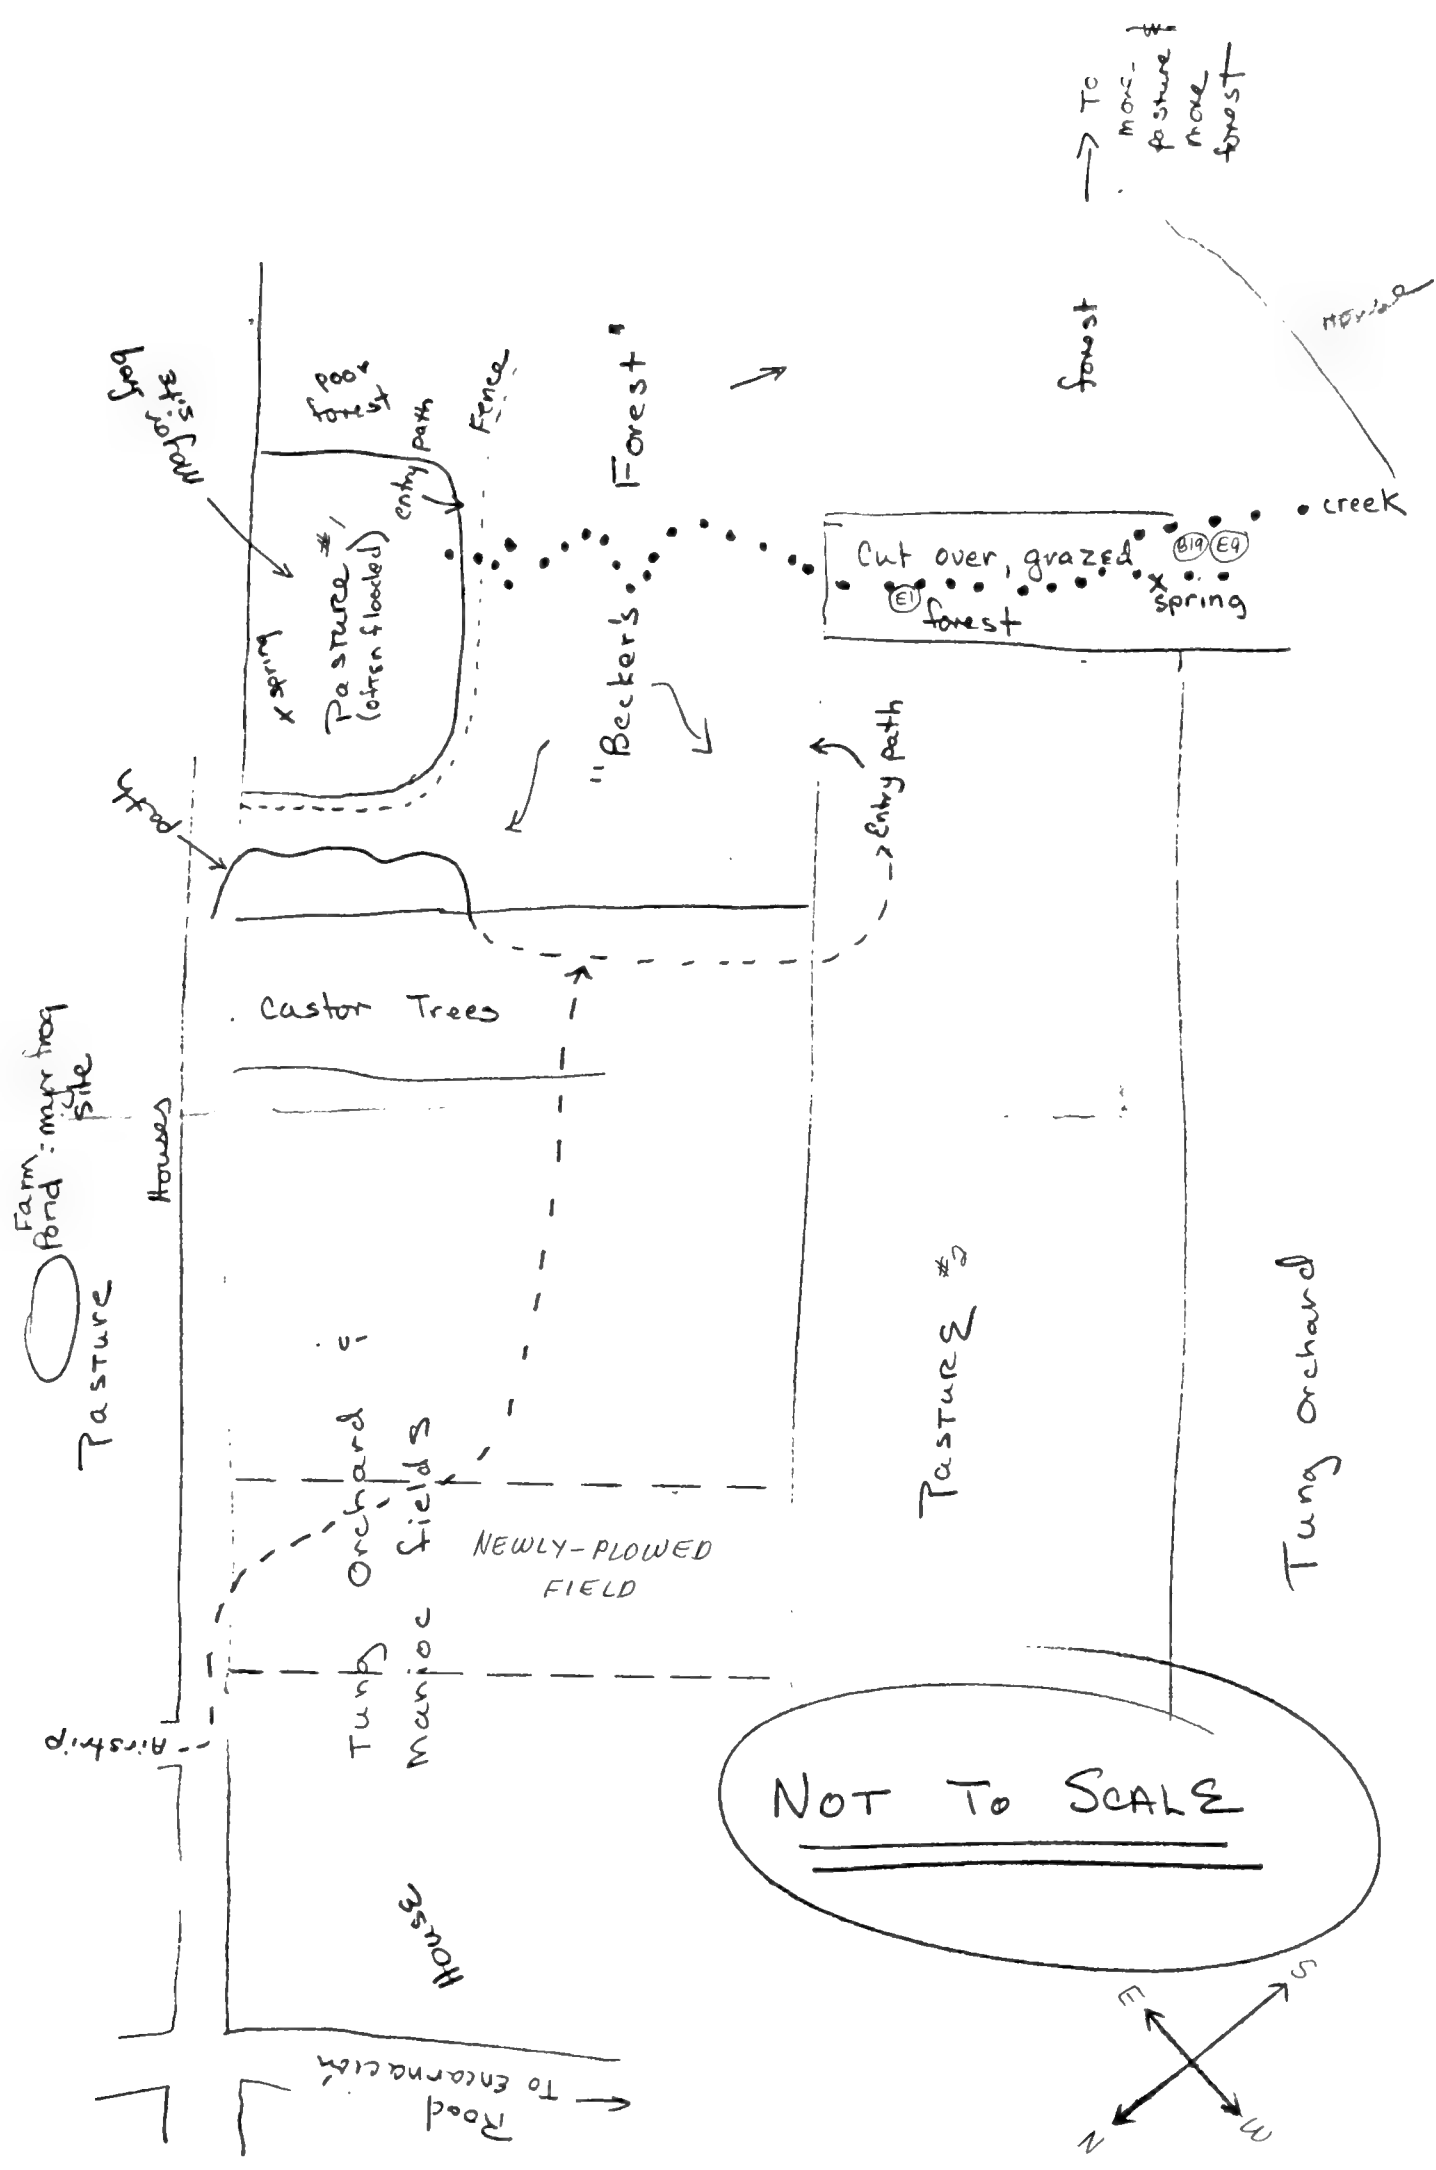 → To
more
pasture &
more
forest
forest
creek
major frog
site
poor
forest
entry path
Fence
"Becker's Forest"
Pasture #1
(often flooded)
x spring
Cut over, grazed
forest
E1
B19
E9
x
spring
path
→ Entry path
Castor Trees
Farm
Pond : major frog
site
Houses
Pasture
Tung Orchard &
Manioc fields
NEWLY-PLOWED
FIELD
Pasture #2
Tung Orchard
Airstrip
NOT TO SCALE
House
Road
To Encarnación
E
S
N
W